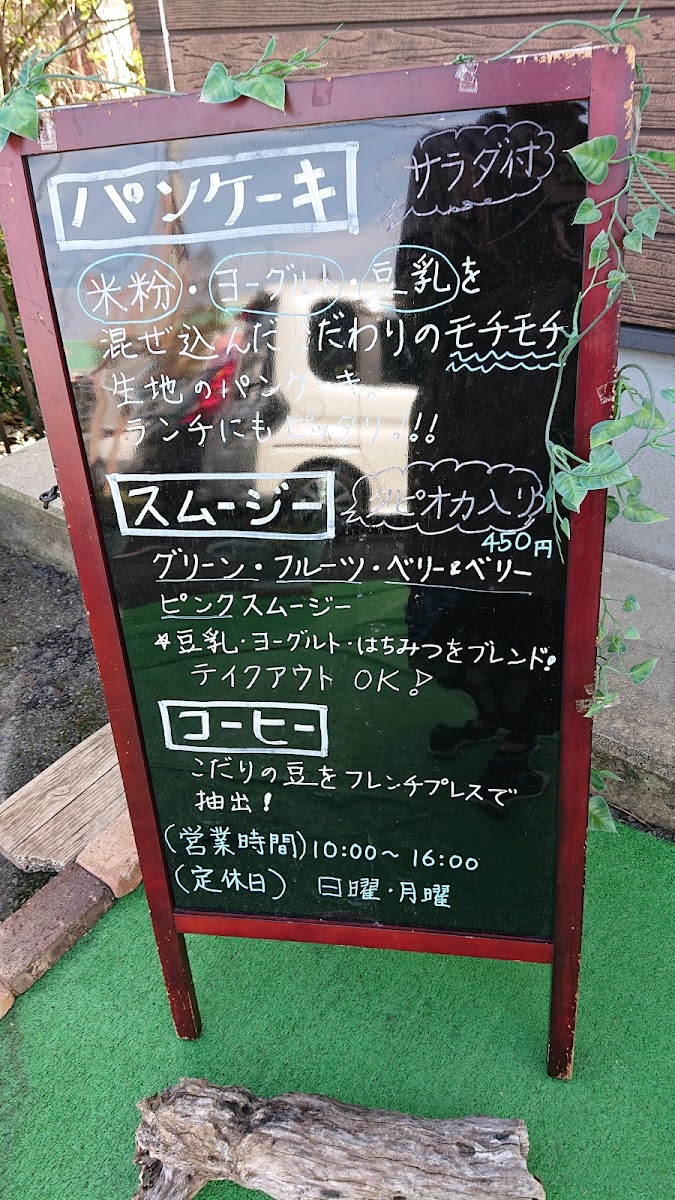 パンケーキ
サラダ付
米粉・ヨーグルト・豆乳を
混ぜ込んだこだわりのモチモチ
生地のパンケーキ。
ランチにもピッタリ!!!
スムージー
タピオカ入り
450円
グリーン・フルーツ・ベリー&ベリー
ピンクスムージー
☆豆乳・ヨーグルト・はちみつをブレンド!
テイクアウト OK!
コーヒー
こだりの豆をフレンチプレスで
抽出!
(営業時間)10:00~16:00
(定休日) 日曜・月曜